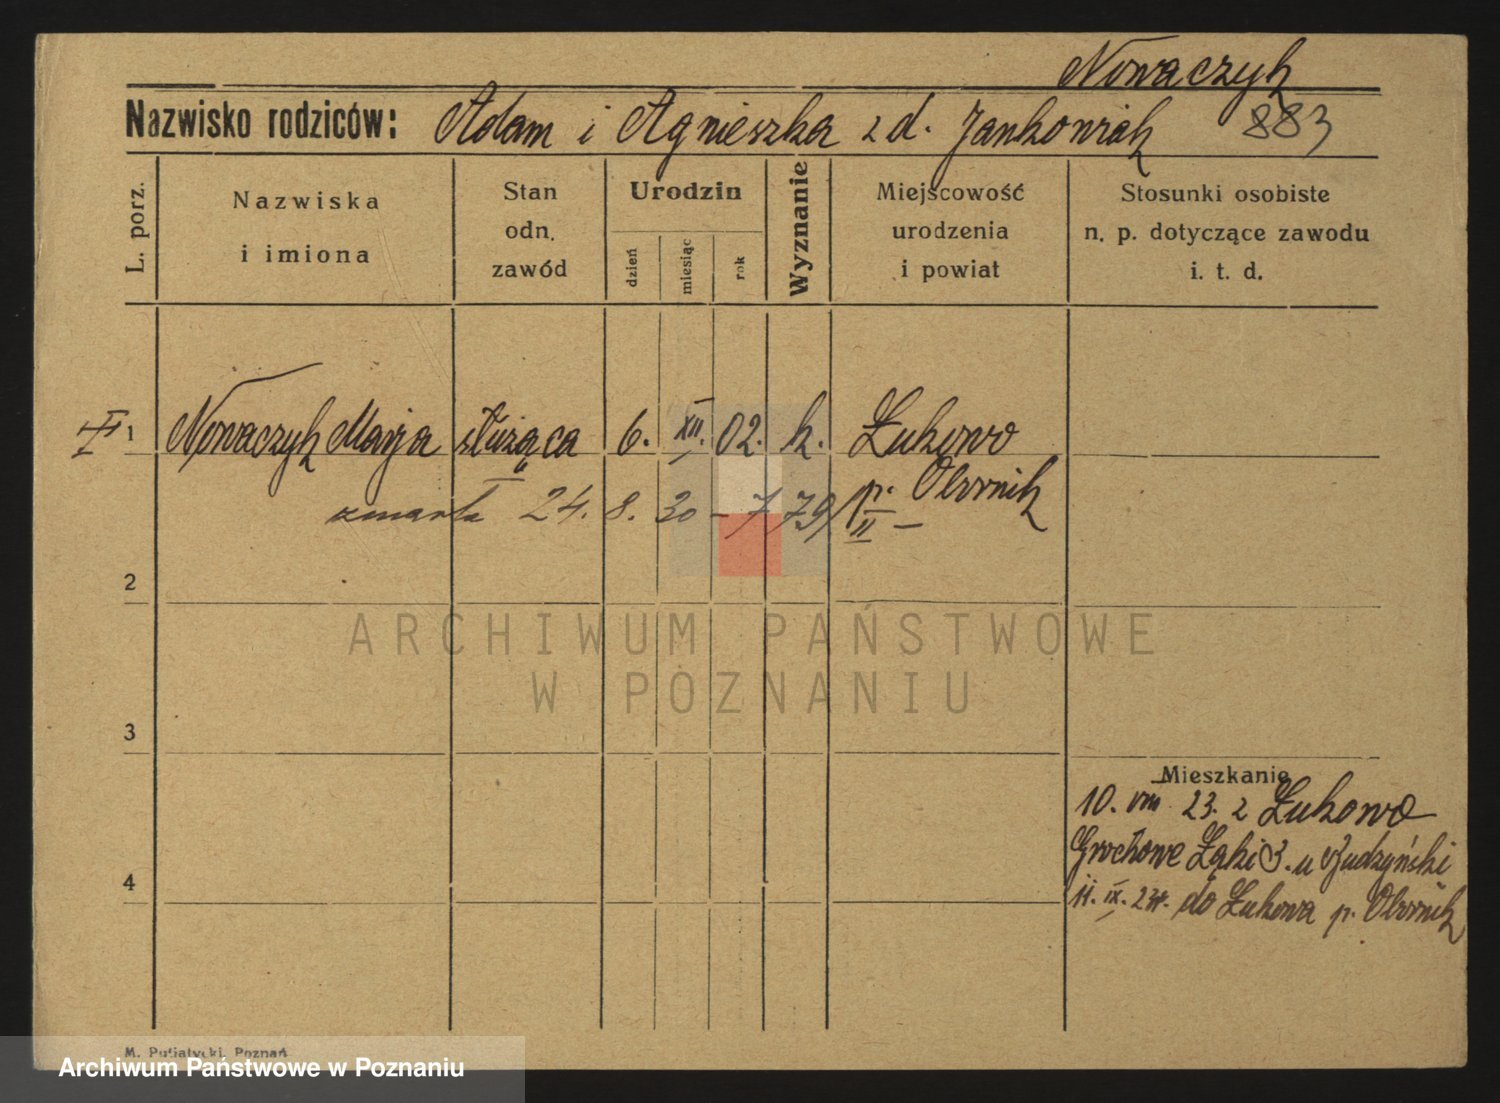 Nowaczyk
Nazwisko rodziców: Adam i Agnieszka z d. Jankowiak 883
L. porz.
Nazwiska
i imiona
Stan
odn.
zawód
Urodzin
dzień
miesiąc
rok
Wyznanie
Miejscowość
urodzenia
i powiat
Stosunki osobiste
n. p. dotyczące zawodu
i. t. d.
1 Nowaczyk Marja służąca 6. XII. 02. k. Łukowo
p. Obornik
zmarła 24. 8. 30 - 779/II -
2
ARCHIWUM PAŃSTWOWE
W POZNANIU
3
Mieszkanie
10. VIII 23. z Łukowo
Grochowe Łąki 3. u Budzyński
11. IX. 24. do Łukowa p. Obornik
4
M. Putiatycki, Poznań
Archiwum Państwowe w Poznaniu